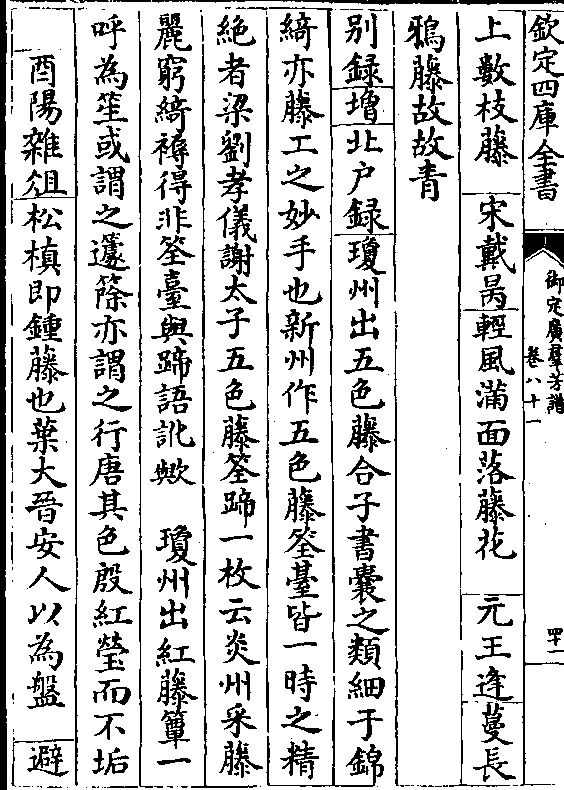 欽定四庫全書
御定廣羣芳譜
卷八十一
四十一
上數枝藤　宋戴昺輕風滿面落藤花　元王逢蔓長
鴉藤故故青
别録增北户録瓊州出五色藤合子書囊之類細于錦
綺亦藤工之妙手也新州作五色藤筌䑓皆一時之精
絶者梁劉孝儀謝太子五色藤筌蹄一枚云炎州采藤
麗窮綺褥得非筌臺與蹄語訛歟　瓊州出紅藤簟一
呼為笙或謂之籧篨亦謂之行唐其色殷紅瑩而不垢
酉陽雜俎松楨即鍾藤也葉大晉安人以為盤　避